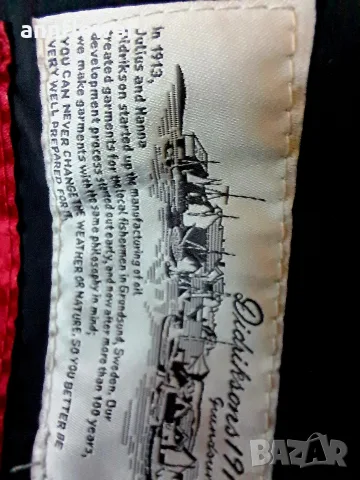 Didriksons 191
Grundsun
In 1913,
Julius and Hanna
Didrikson started up the manufacturing of oil
treated garments for the local fishermen in Grundsund, Sweden. Our
development process started out early, and now after more than 100 years,
we make garments with the same philosophy in mind;
YOU CAN NEVER CHANGE THE WEATHER OR NATURE, SO YOU BETTER BE
VERY WELL PREPARED FOR IT.
BAZAR